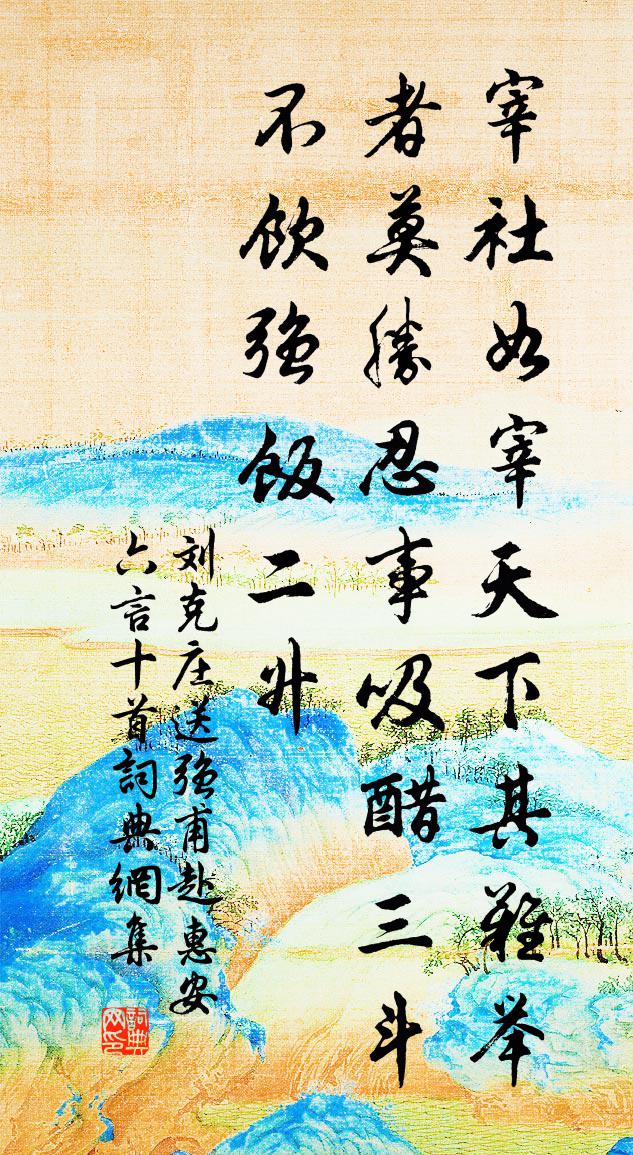 宰社如宰天下其難举
者莫勝忍事吸醋三斗
不飲強飯二升
刘克庄送強甫赴惠安
六言十首詞典網集
詞典網印